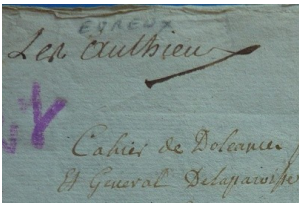 EVREUX
Les Authieux
Cahier de Doleances
Et General Delaparoisse